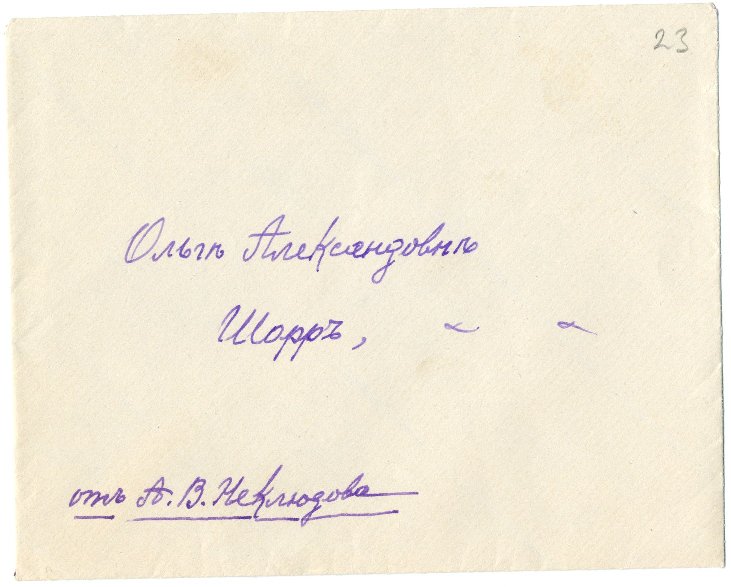 23
Ольгѣ Александовнѣ
Шорръ,
отъ А. В. Неклюдова